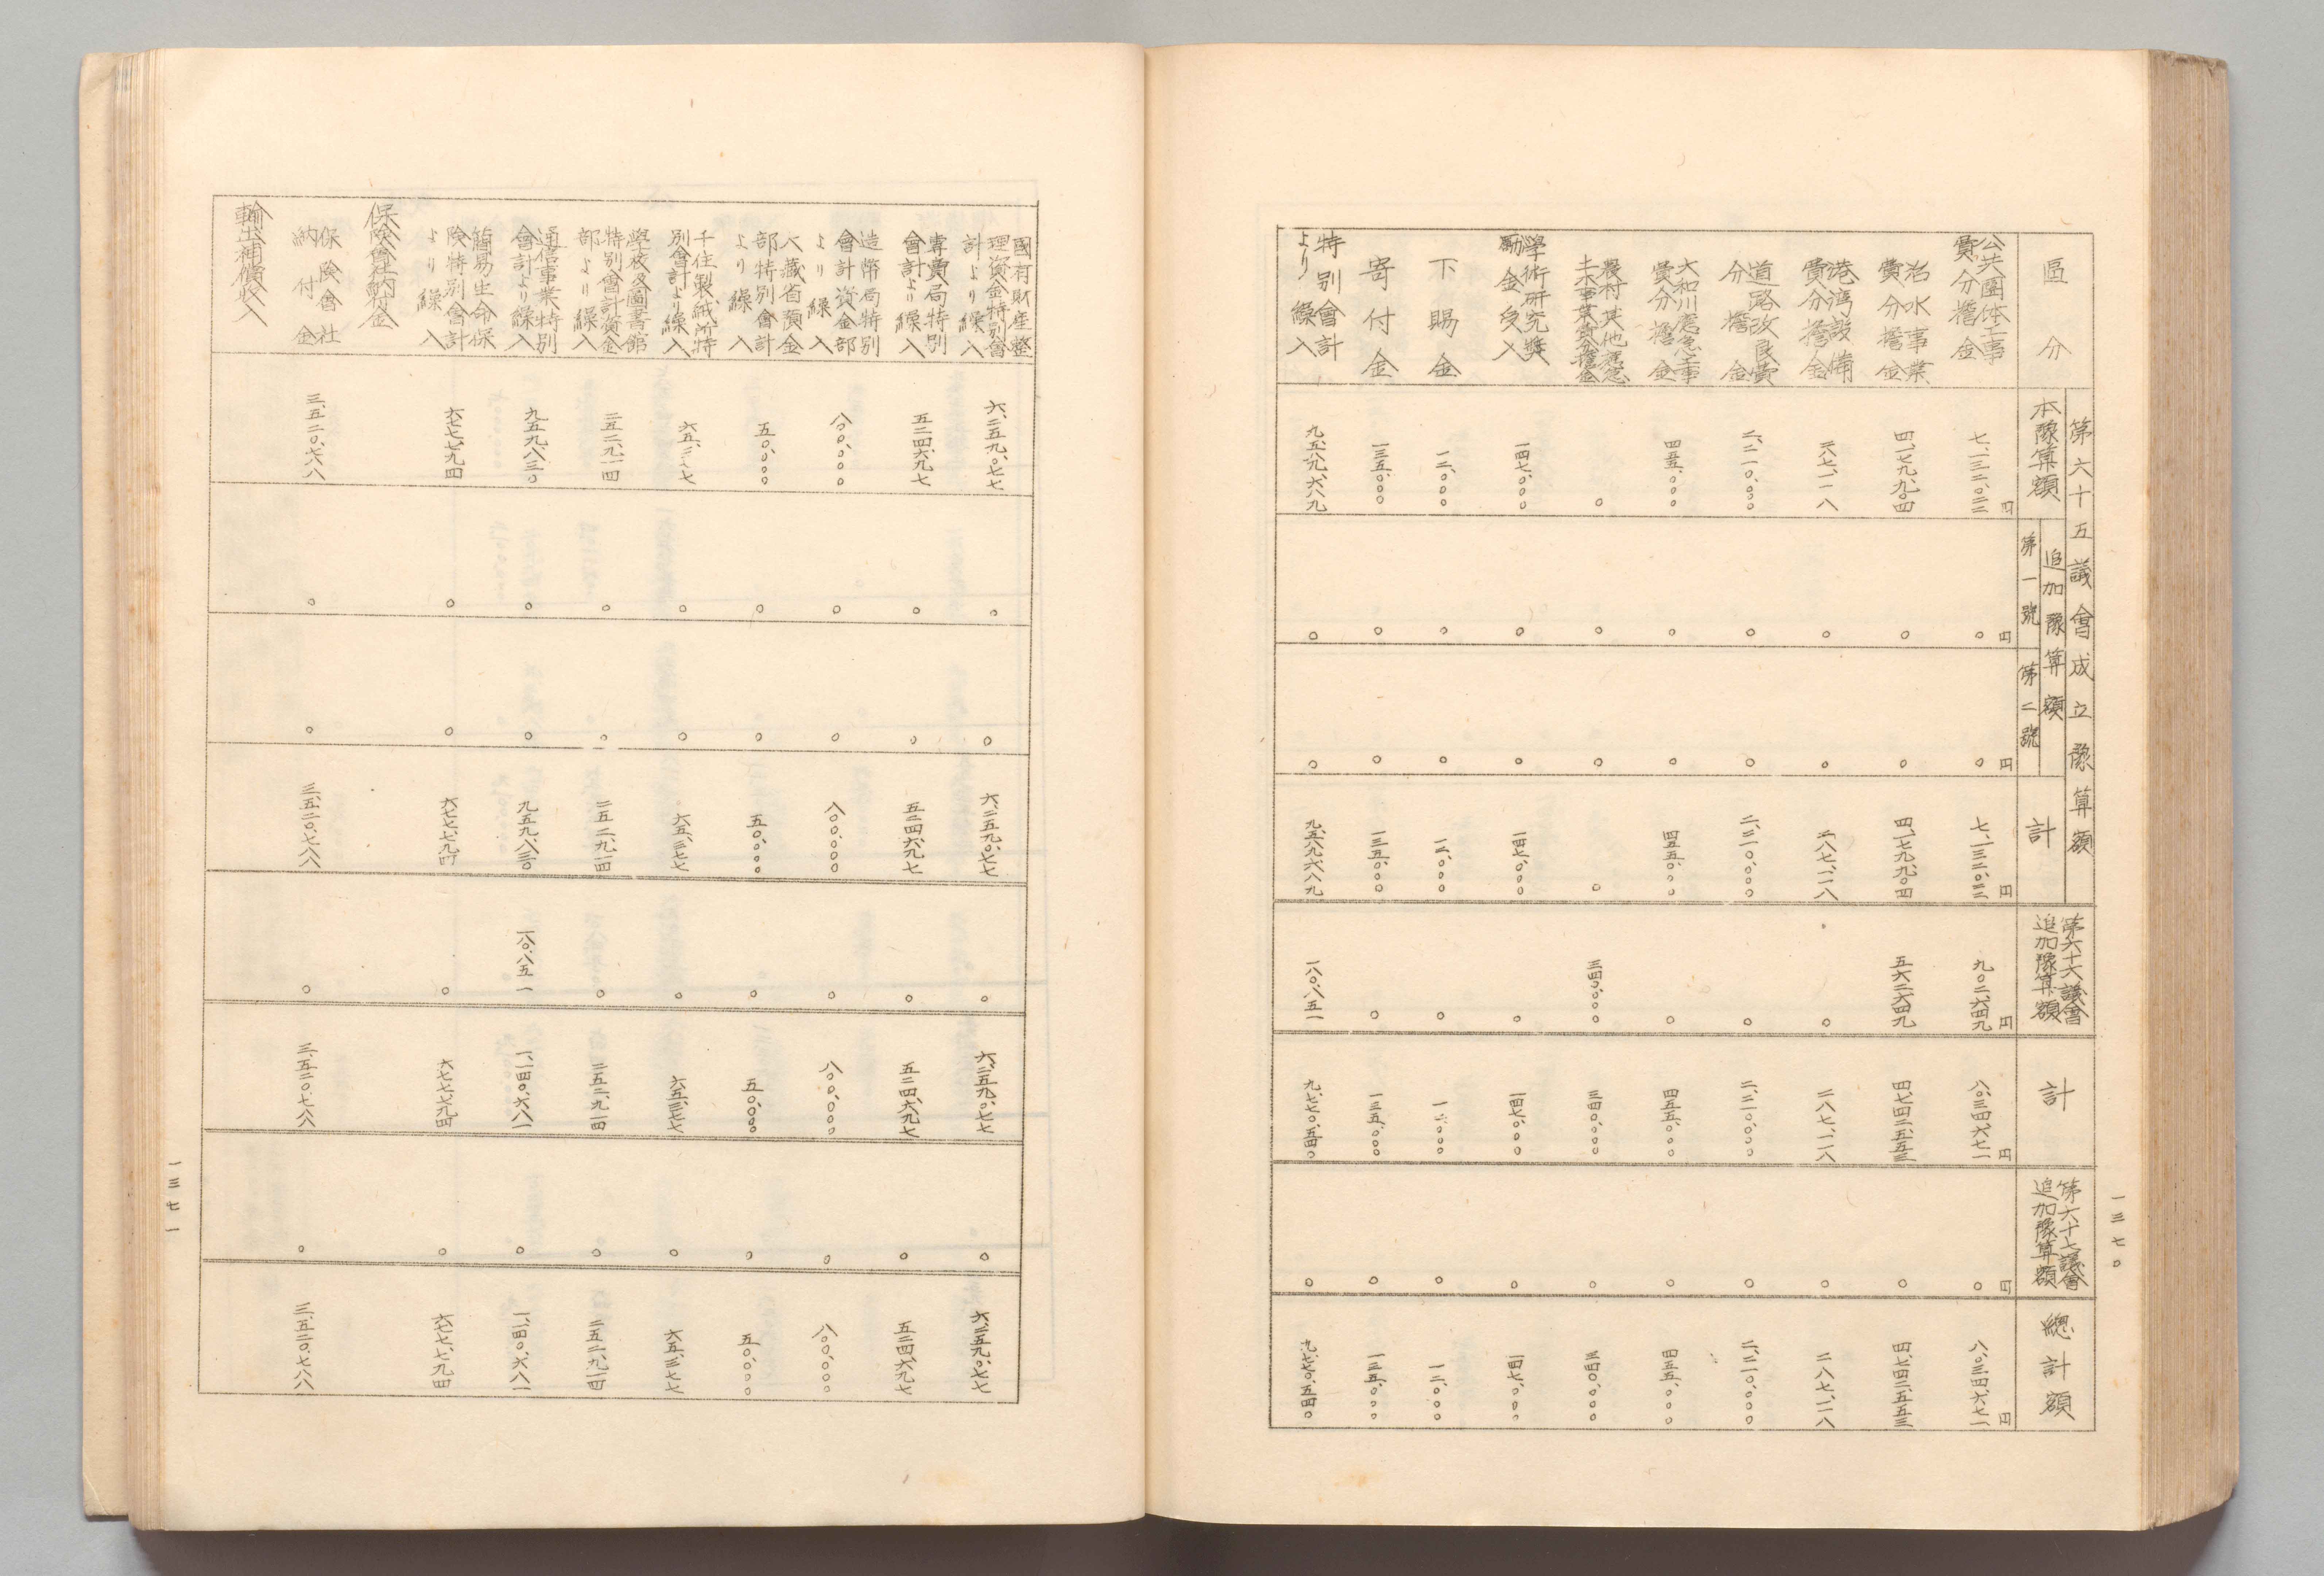 一三七〇
區分
第六十五議會成立豫算額
本豫算額
追加豫算額
第一號
第二號
計
第六十六議會
追加豫算額
計
第六十七議會
追加豫算額
總計額
公共團体工事
費分擔金
七、一三二、〇二二円
〇円
〇円
七、一三二、〇二二円
九〇二、六四九円
八、〇三四、六七一円
〇円
八、〇三四、六七一円
治水事業
費分擔金
四、一七九、九〇四
〇
〇
四、一七九、九〇四
五六二、六四九
四、七四二、五五三
〇
四、七四二、五五三
港湾設備
費分擔金
二八七、一一八
〇
〇
二八七、一一八
〇
二八七、一一八
〇
二八七、一一八
道路改良費
分擔金
二、二一〇、〇〇〇
〇
〇
二、二一〇、〇〇〇
〇
二、二一〇、〇〇〇
〇
二、二一〇、〇〇〇
大和川應急工事
費分擔金
四五五、〇〇〇
〇
〇
四五五、〇〇〇
〇
四五五、〇〇〇
〇
四五五、〇〇〇
農村其他應急
土木事業費分擔金
〇
〇
〇
〇
三四〇、〇〇〇
三四〇、〇〇〇
〇
三四〇、〇〇〇
學術研究奬
勵金受入
一四七、〇〇〇
〇
〇
一四七、〇〇〇
〇
一四七、〇〇〇
〇
一四七、〇〇〇
下賜金
一二、〇〇〇
〇
〇
一二、〇〇〇
〇
一二、〇〇〇
〇
一二、〇〇〇
寄付金
一三五、〇〇〇
〇
〇
一三五、〇〇〇
〇
一三五、〇〇〇
〇
一三五、〇〇〇
特別會計
より繰入
九、五八九、六八九
〇
〇
九、五八九、六八九
一八〇、八五一
九、七七〇、五四〇
〇
九、七七〇、五四〇
國有財産整
理資金特別會
計より繰入
六、二五九、〇七七
〇
〇
六、二五九、〇七七
〇
六、二五九、〇七七
〇
六、二五九、〇七七
專賣局特別
會計より繰入
五二四、六九七
〇
〇
五二四、六九七
〇
五二四、六九七
〇
五二四、六九七
造幣局特別
會計資金部
より繰入
八〇〇、〇〇〇
〇
〇
八〇〇、〇〇〇
〇
八〇〇、〇〇〇
〇
八〇〇、〇〇〇
大藏省預金
部特別會計
より繰入
五〇、〇〇〇
〇
〇
五〇、〇〇〇
〇
五〇、〇〇〇
〇
五〇、〇〇〇
千住製絨所特
別會計より繰入
六五、三七七
〇
〇
六五、三七七
〇
六五、三七七
〇
六五、三七七
學校及圖書館
特別會計資金
部より繰入
二五二、九一四
〇
〇
二五二、九一四
〇
二五二、九一四
〇
二五二、九一四
通信事業特別
會計より繰入
九五九、八三〇
〇
〇
九五九、八三〇
一八〇、八五一
一、一四〇、六八一
〇
一、一四〇、六八一
簡易生命保
険特別會計
より繰入
六七七、七九四
〇
〇
六七七、七九四
〇
六七七、七九四
〇
六七七、七九四
保険會社納付金
保険會社
納付金
三、五二〇、七八八
〇
〇
三、五二〇、七八八
〇
三、五二〇、七八八
〇
三、五二〇、七八八
輸出補償收入
一三七一